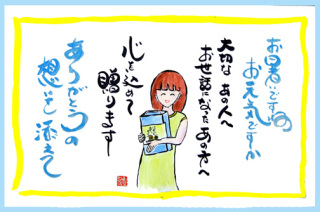 お暑いですね
お元気ですか
大切な あの人へ
お世話になった あの方へ
心を込めて
贈ります
ありがとうの
想いを 添えて